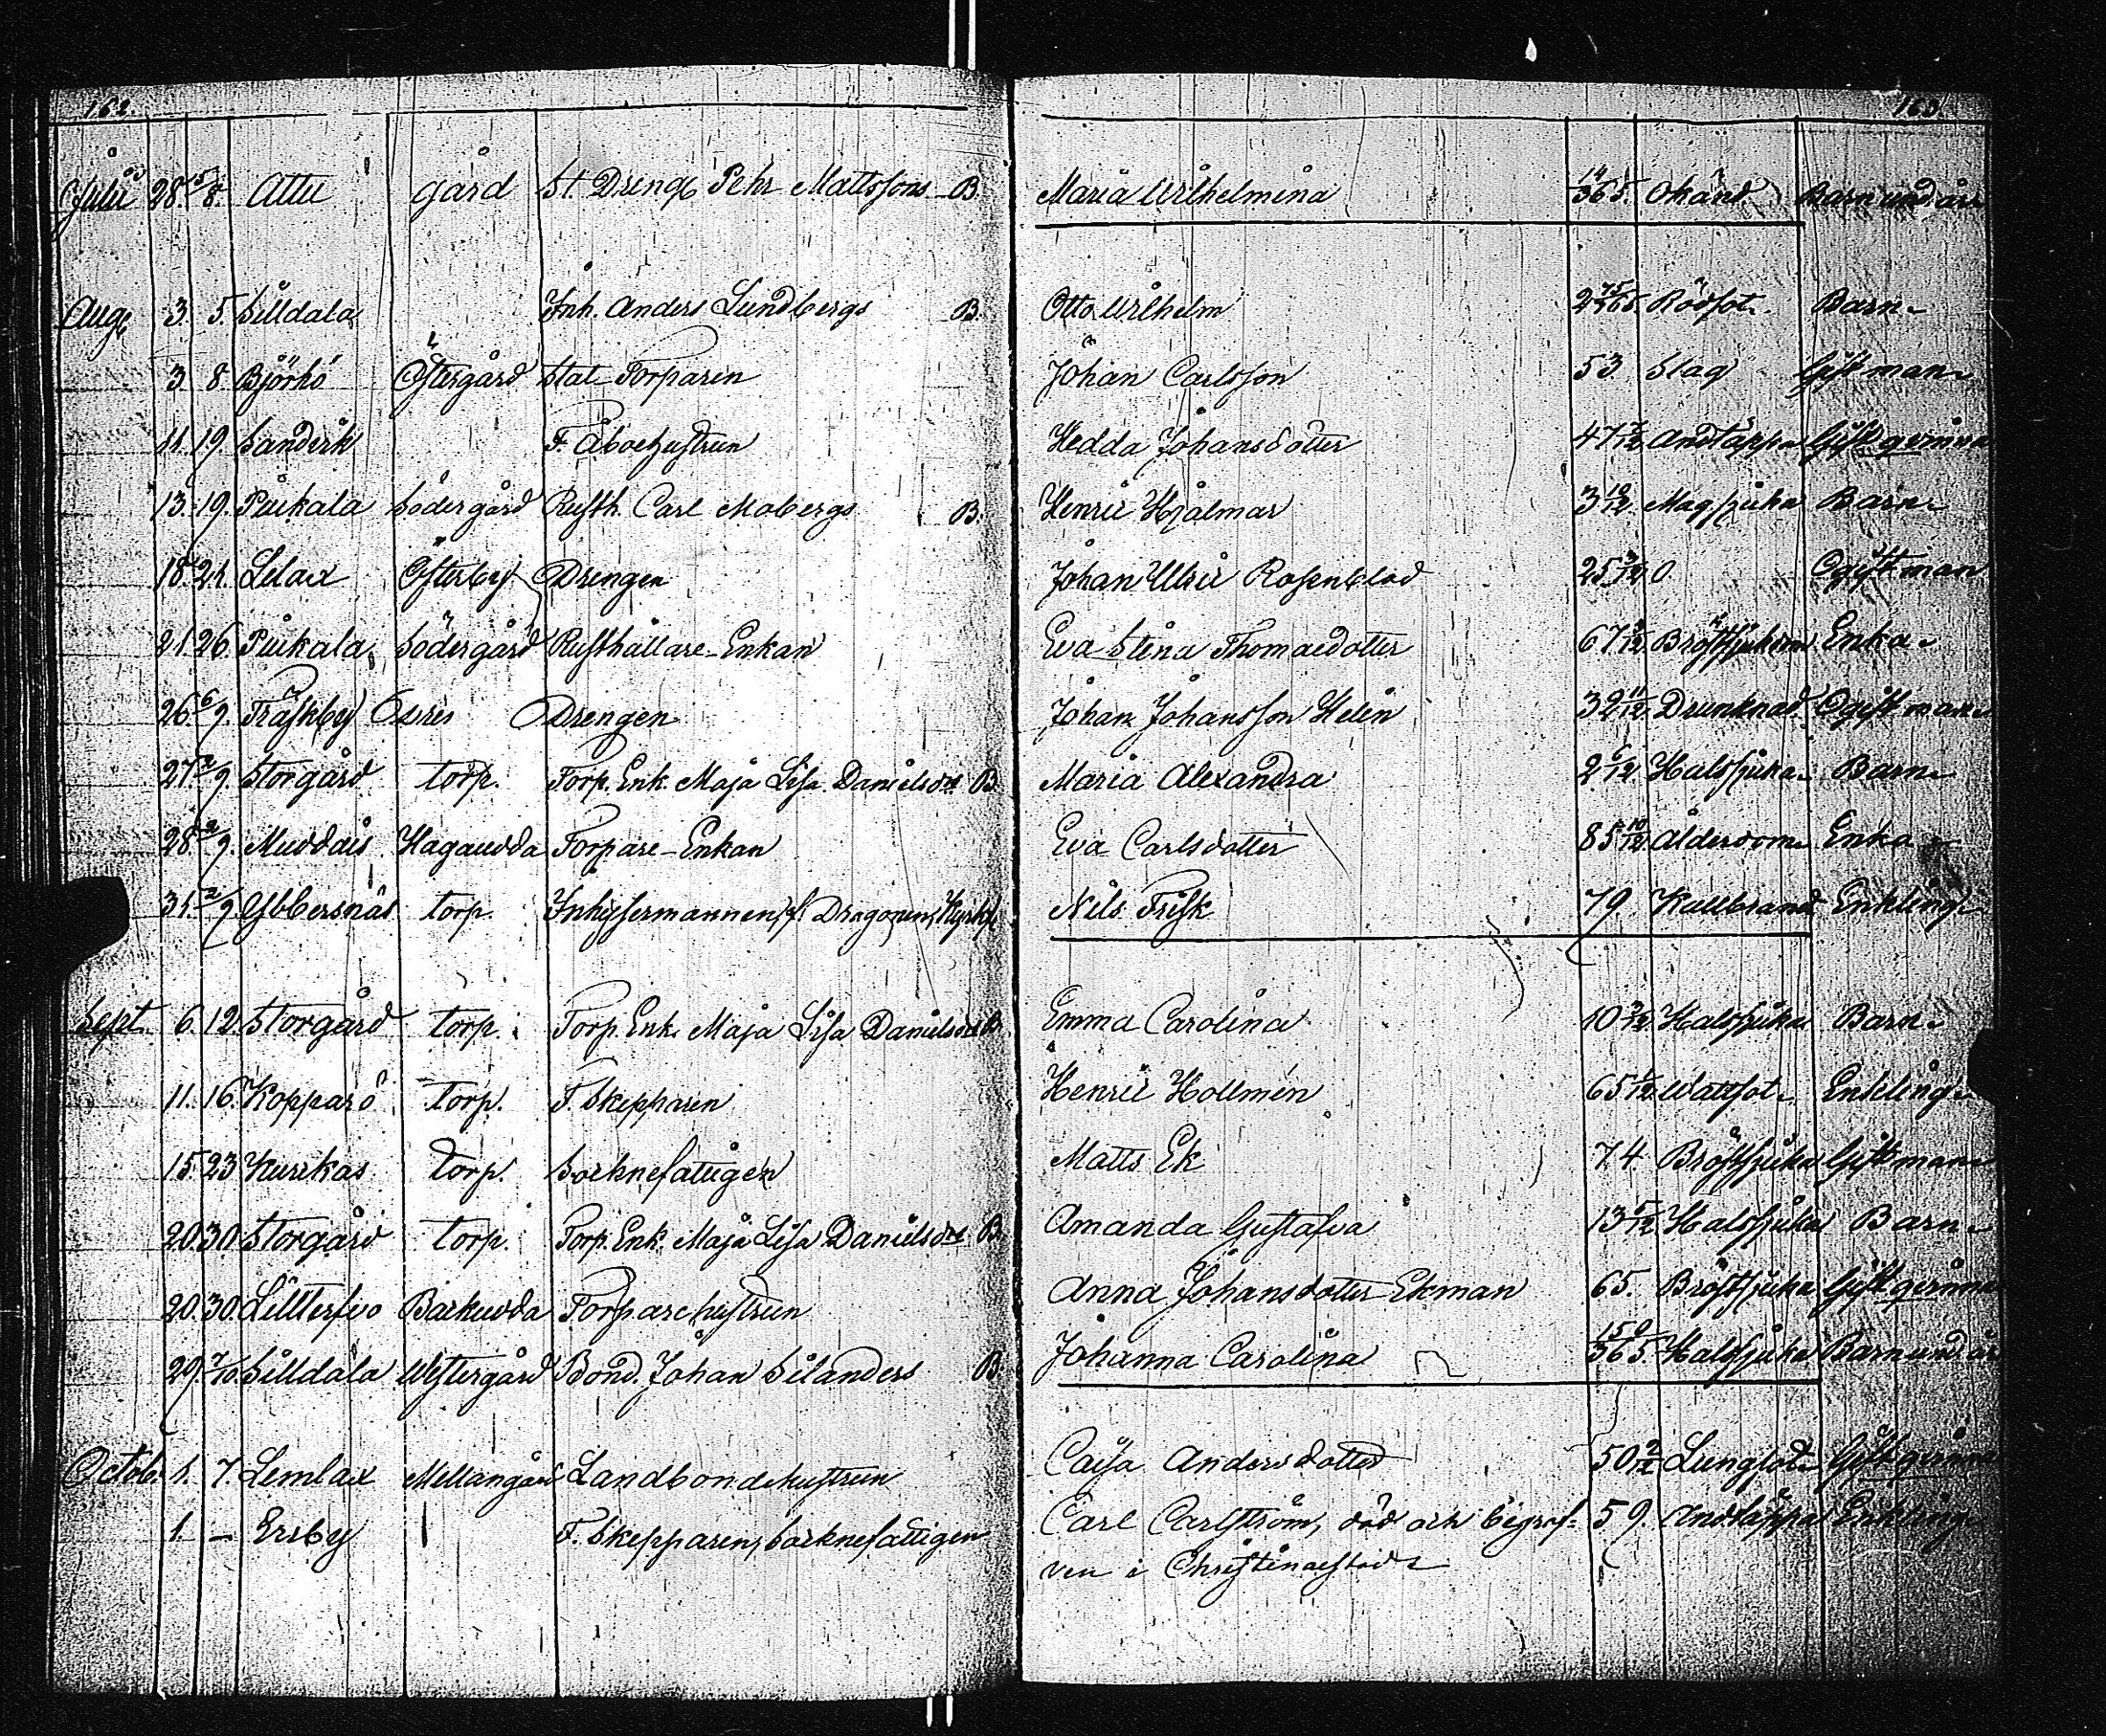 162.
163.
Juli 28 5/8. Attu gård St. Dreng Pehr Mattssons B. Maria Wilhelmina 14/365. Okänd Barn und. år
Aug. 3. 5. Silldala Inh. Anders Lundbergs B. Otto Wilhelm 2 75/365 Rödsot. Barn
3 8 Björkö Östergård Stat-Torparen Johan Carlsson 53. Slag Gift man
11. 19. Sandvik F. Åboehustrun Hedda Johansdotter 47 7/12 Andtäppa Gift qvinna
13. 19. Piukala Södergård Rusth. Carl Mobergs B. Henric Hjalmar 3 10/12 Magsjuka Barn
18. 21. Lilax Österby Drengen Johan Ulric Rosenblad 25 3/12 O. Ogift man
21. 26. Piukala Södergård Rusthållare-Enkan Eva Stina Thomædotter 67 /12 Bröstsjukdom Enka
26 6/9. Träskby Övres Drengen Johan Johansson Helin 32 11/12 Drunknad Ogift man
27 2/9. Storgård torp. Torp. Enk. Maja Lisa Danielsdr B Maria Alexandra 2 6/12 Halssjuka Barn
28 2/9. Muddais Hagaudda Torpare-Enkan Eva Carlsdotter 85 10/12 Ålderdom Enka
31. 2/9. Ybbersnäs torp. Inhysesmannen, f. Dragonen, Kyrkf Nils Frisk 79 Kallbrand Enkling
Sept. 6. 12. Storgård torp. Torp. Enk. Maja Lisa Danielsdr B Emma Carolina 10 3/12 Halssjuka Barn
11. 16. Kopparö torp. F. Skepparen Henric Hollmén 65 1/12 Wattsot. Enkling
15. 23 Kurkas torp. Socknefattigen Matts Ek 74. Bröstsjuka Gift man
20. 30. Storgård torp. Torp. Enk. Maja Lisa Danielsdr B. Amanda Gustafva 13 5/12. Halssjuka Barn
20. 30. Littersvo Backudda Torparehustrun Anna Johansdotter Ekman 65. Bröstsjuka Gift qvinna
29. 7/10. Silldala Westergård Bond. Johan Silanders B. Johanna Carolina 150/365. Halssjuka Barn und. år
Octob. 1. 7. Lemlax Mellangård Landbondehustrun Caisa Andersdotter 50 2/12 Lungsot Gift qvinna
1. – Ersby F. Skepparen, Socknefattigen Carl Carlström, död och begraf- 59. Andtäppa Enkling
ven i Christinæstad